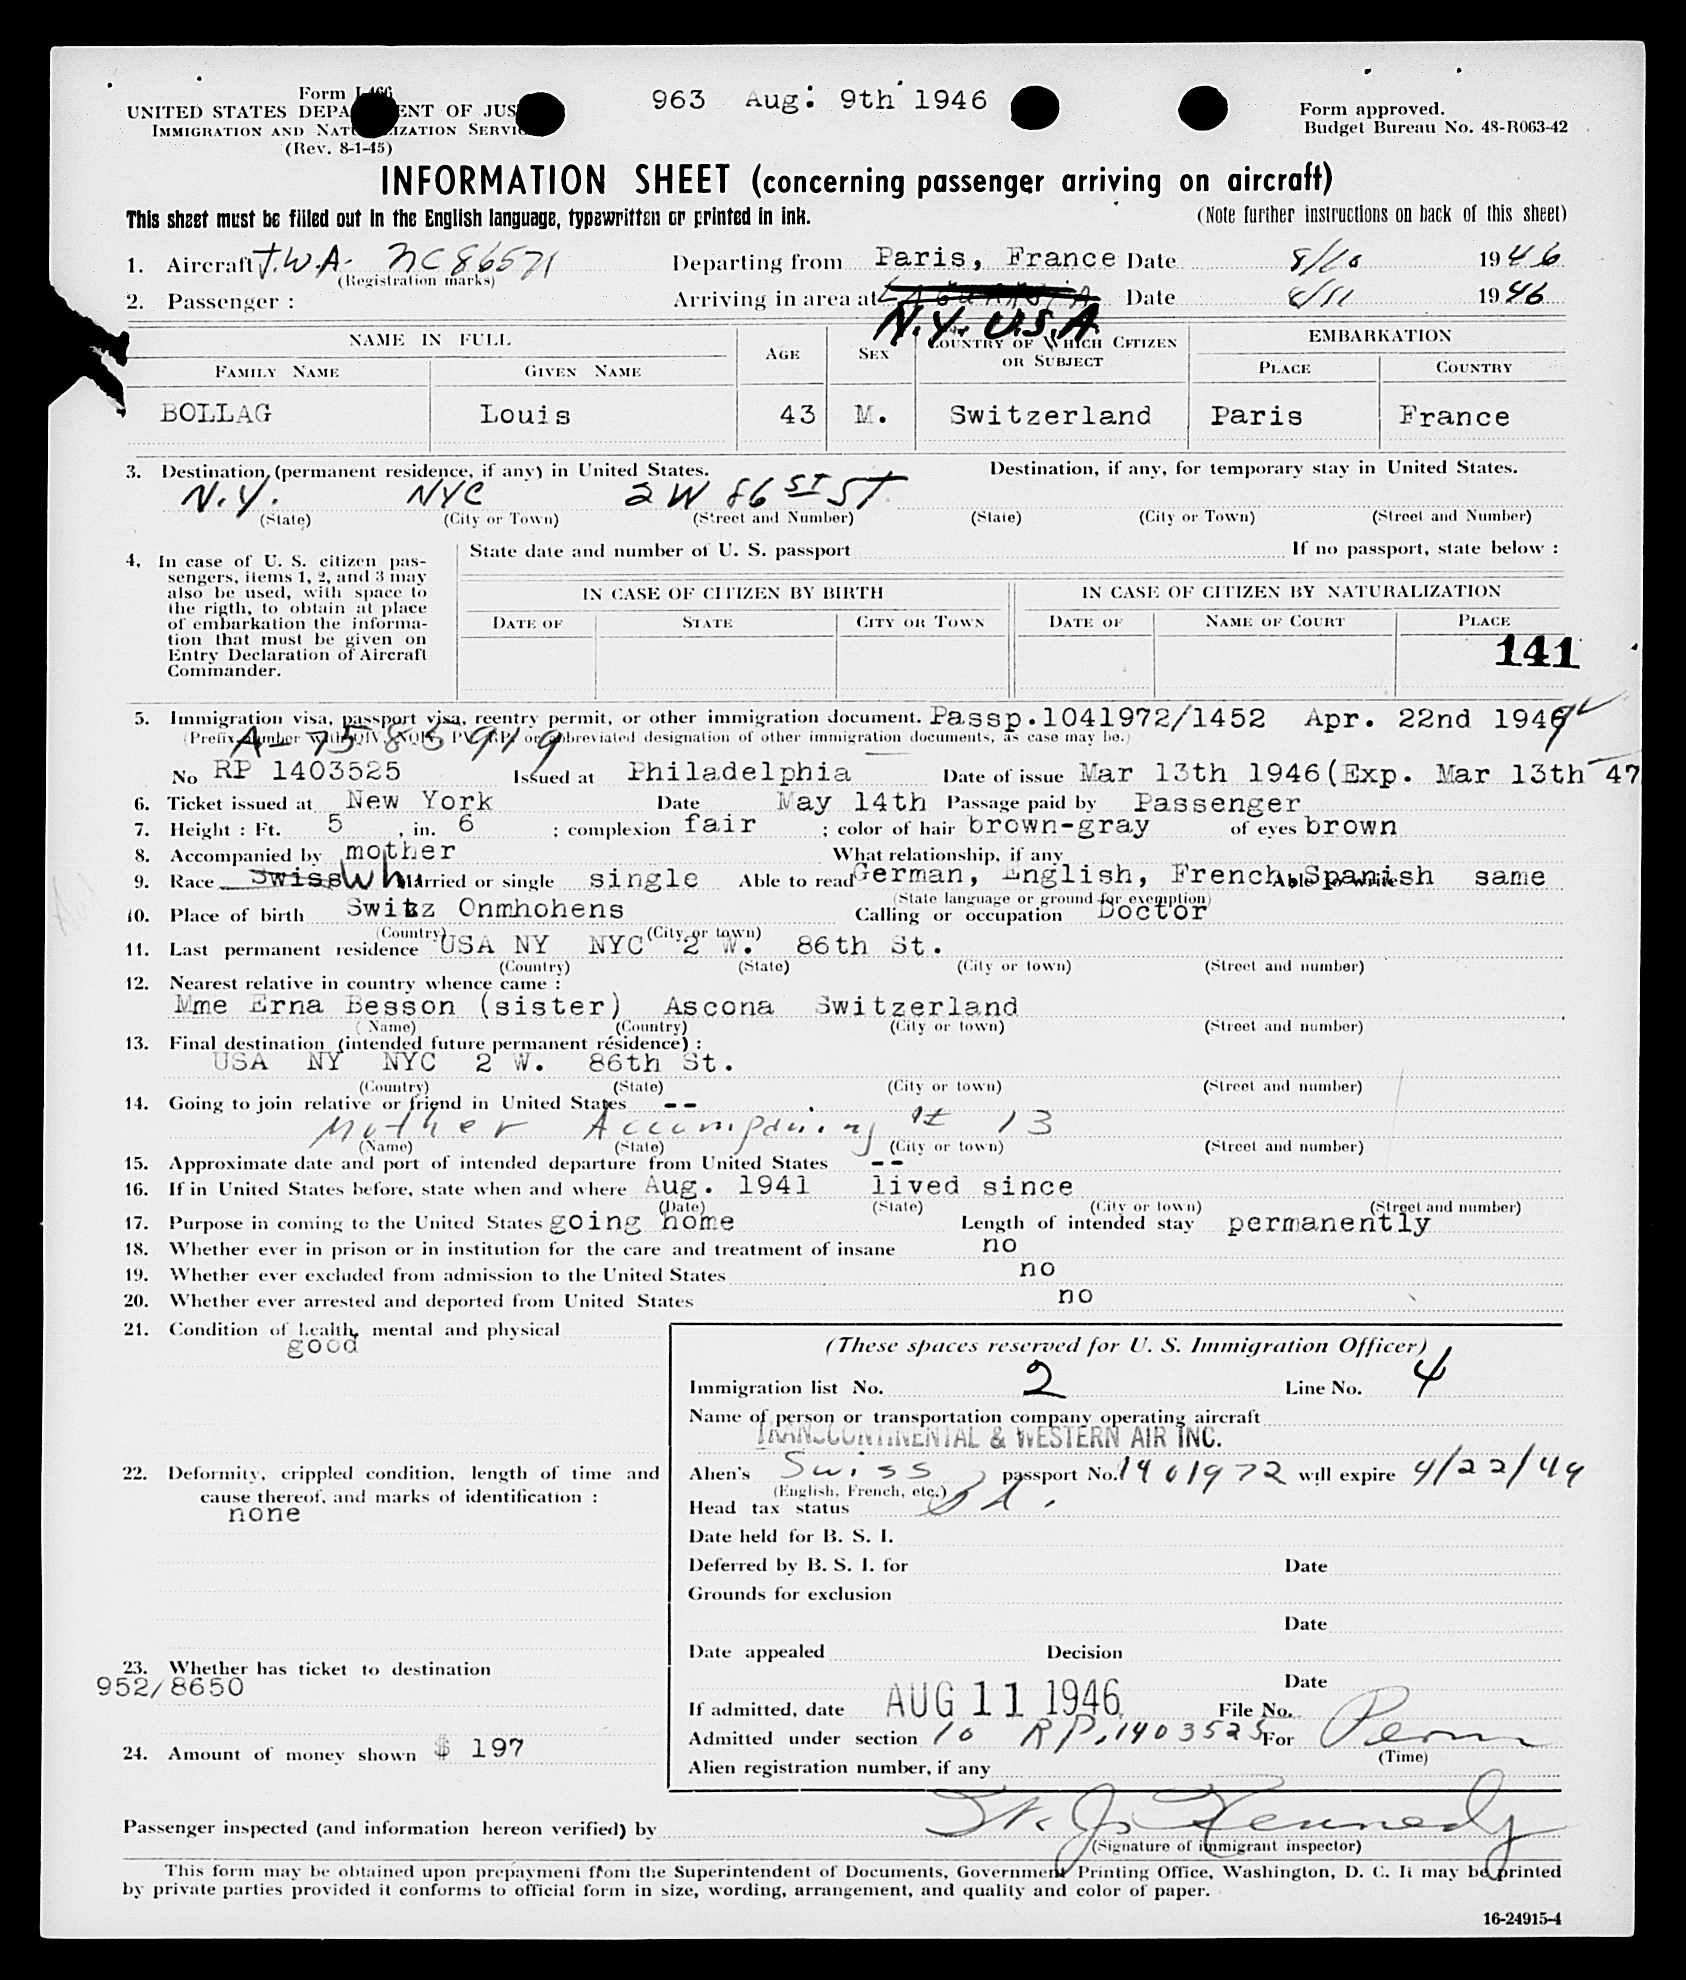 963 Aug. 9th 1946
Form I-466
UNITED STATES DEPARTMENT OF JUSTICE
IMMIGRATION AND NATURALIZATION SERVICE
(Rev. 8-1-45)
Form approved.
Budget Bureau No. 43-R063-42
INFORMATION SHEET (concerning passenger arriving on aircraft)
This sheet must be filled out in the English language, typewritten or printed in ink.
(Note further instructions on back of this sheet)
1. Aircraft T.W.A. NC 86571 Departing from Paris, France Date 8/10 1946
(Registration marks)
2. Passenger : Arriving in area at LAGUARDIA Date 8/11 1946
N.Y. U.S.A
NAME IN FULL AGE SEX COUNTRY OF WHICH CITIZEN OR SUBJECT EMBARKATION
FAMILY NAME GIVEN NAME PLACE COUNTRY
BOLLAG Louis 43 M. Switzerland Paris France
3. Destination, (permanent residence, if any) in United States. Destination, if any, for temporary stay in United States.
N.Y. NYC 2 W 86 ST ST.
(State) (City or Town) (Street and Number) (State) (City or Town) (Street and Number)
4. In case of U. S. citizen pas-
sengers, items 1, 2, and 3 may
also be used, with space to
the rigth, to obtain at place
of embarkation the informa-
tion that must be given on
Entry Declaration of Aircraft
Commander.
State date and number of U. S. passport If no passport, state below :
IN CASE OF CITIZEN BY BIRTH IN CASE OF CITIZEN BY NATURALIZATION
DATE OF STATE CITY OR TOWN DATE OF NAME OF COURT PLACE
141
5. Immigration visa, passport visa, reentry permit, or other immigration document. Passp.1041972/1452 Apr. 22nd 1946
(Prefix number with QIV, NQIV, PV, RP, or abbreviated designation of other immigration documents, as case may be.)
A-
No RP 1403525 Issued at Philadelphia Date of issue Mar 13th 1946(Exp. Mar 13th 47
6. Ticket issued at New York Date May 14th Passage paid by Passenger
7. Height : Ft. 5 , in. 6 ; complexion fair ; color of hair brown-gray of eyes brown
8. Accompanied by mother What relationship, if any
9. Race Swiss Wh. Married or single single Able to read German, English, French, Spanish Able to write same
(State language or ground for exemption)
10. Place of birth Switz Onmhohens Calling or occupation Doctor
(Country) (City or town)
11. Last permanent residence USA NY NYC 2 W. 86th St.
(Country) (State) (City or town) (Street and number)
12. Nearest relative in country whence came :
Mme Erna Besson (sister) Ascona Switzerland
(Name) (Country) (City or town) (Street and number)
13. Final destination (intended future permanent résidence) :
USA NY NYC 2 W. 86th St.
(Country) (State) (City or town) (Street and number)
14. Going to join relative or friend in United States --
Mother Accompaning at 13
(Name) (State) (City or town) (Street and number)
15. Approximate date and port of intended departure from United States --
16. If in United States before, state when and where Aug. 1941 lived since
(Date) (State) (City or town) (Street and number)
17. Purpose in coming to the United States going home Length of intended stay permanently
18. Whether ever in prison or in institution for the care and treatment of insane no
19. Whether ever excluded from admission to the United States no
20. Whether ever arrested and deported from United States no
21. Condition of health, mental and physical
good
22. Deformity, crippled condition, length of time and
cause thereof, and marks of identification :
none
23. Whether has ticket to destination
952/8650
24. Amount of money shown $ 197
(These spaces reserved for U. S. Immigration Officer)
Immigration list No. 2 Line No. 4
Name of person or transportation company operating aircraft
TRANSCONTINENTAL & WESTERN AIR INC.
Alien's Swiss passport No. 1401972 will expire 4/22/49
(English, French, etc.)
Head tax status
Date held for B. S. I.
Deferred by B. S. I. for Date
Grounds for exclusion
Date
Date appealed Decision
Date
If admitted, date AUG 11 1946 File No.
Admitted under section 10 RP.1403525 For Perm
(Time)
Alien registration number, if any
Passenger inspected (and information hereon verified) by J. Kennedy
(Signature of immigrant inspector)
This form may be obtained upon prepayment from the Superintendent of Documents, Government Printing Office, Washington, D. C. It may be printed
by private parties provided it conforms to official form in size, wording, arrangement, and quality and color of paper.
16-24915-4